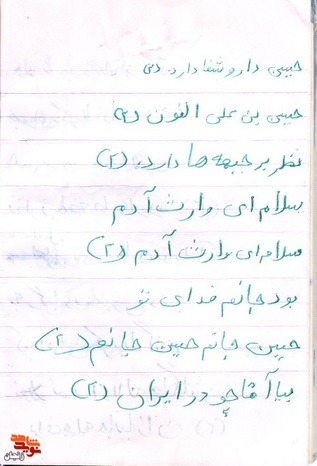 حبیبی دارو شفا دارد (۲)
حبیبی بن علی الفون (۲)
نظر بر جبهه ها دارد (۲)
سلام ای وارث آدم
سلام ای وارث آدم (۲)
بود جانم فدای تو
حسین جانم حسین جانم (۲)
بیا آقا چو در ایران (۲)